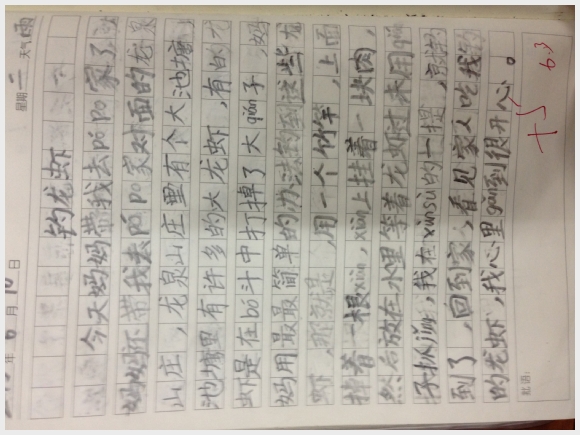 年6月10日 星期二 天气
钓龙虾
今天妈妈带我去pó po家了,
妈妈还带我去pó po家对面的龙泉
山庄,龙泉山庄里有个大池塘,
池塘里有许多的大龙虾,有的龙
虾是在bó斗中打掉了大qián子,妈
妈用最最简单的办法钓到这些龙
虾,那就是,用一个竹竿,上面
掉着一根xiàn,xiàn上挂着一块肉,
然后放在水里等着龙虾过来用qián
子抓jǐng,我在xùn sù的一提,就钓
到了,回到家,看见家人吃我钓
的龙虾,我心里感到很开心。
批阅:
6.3